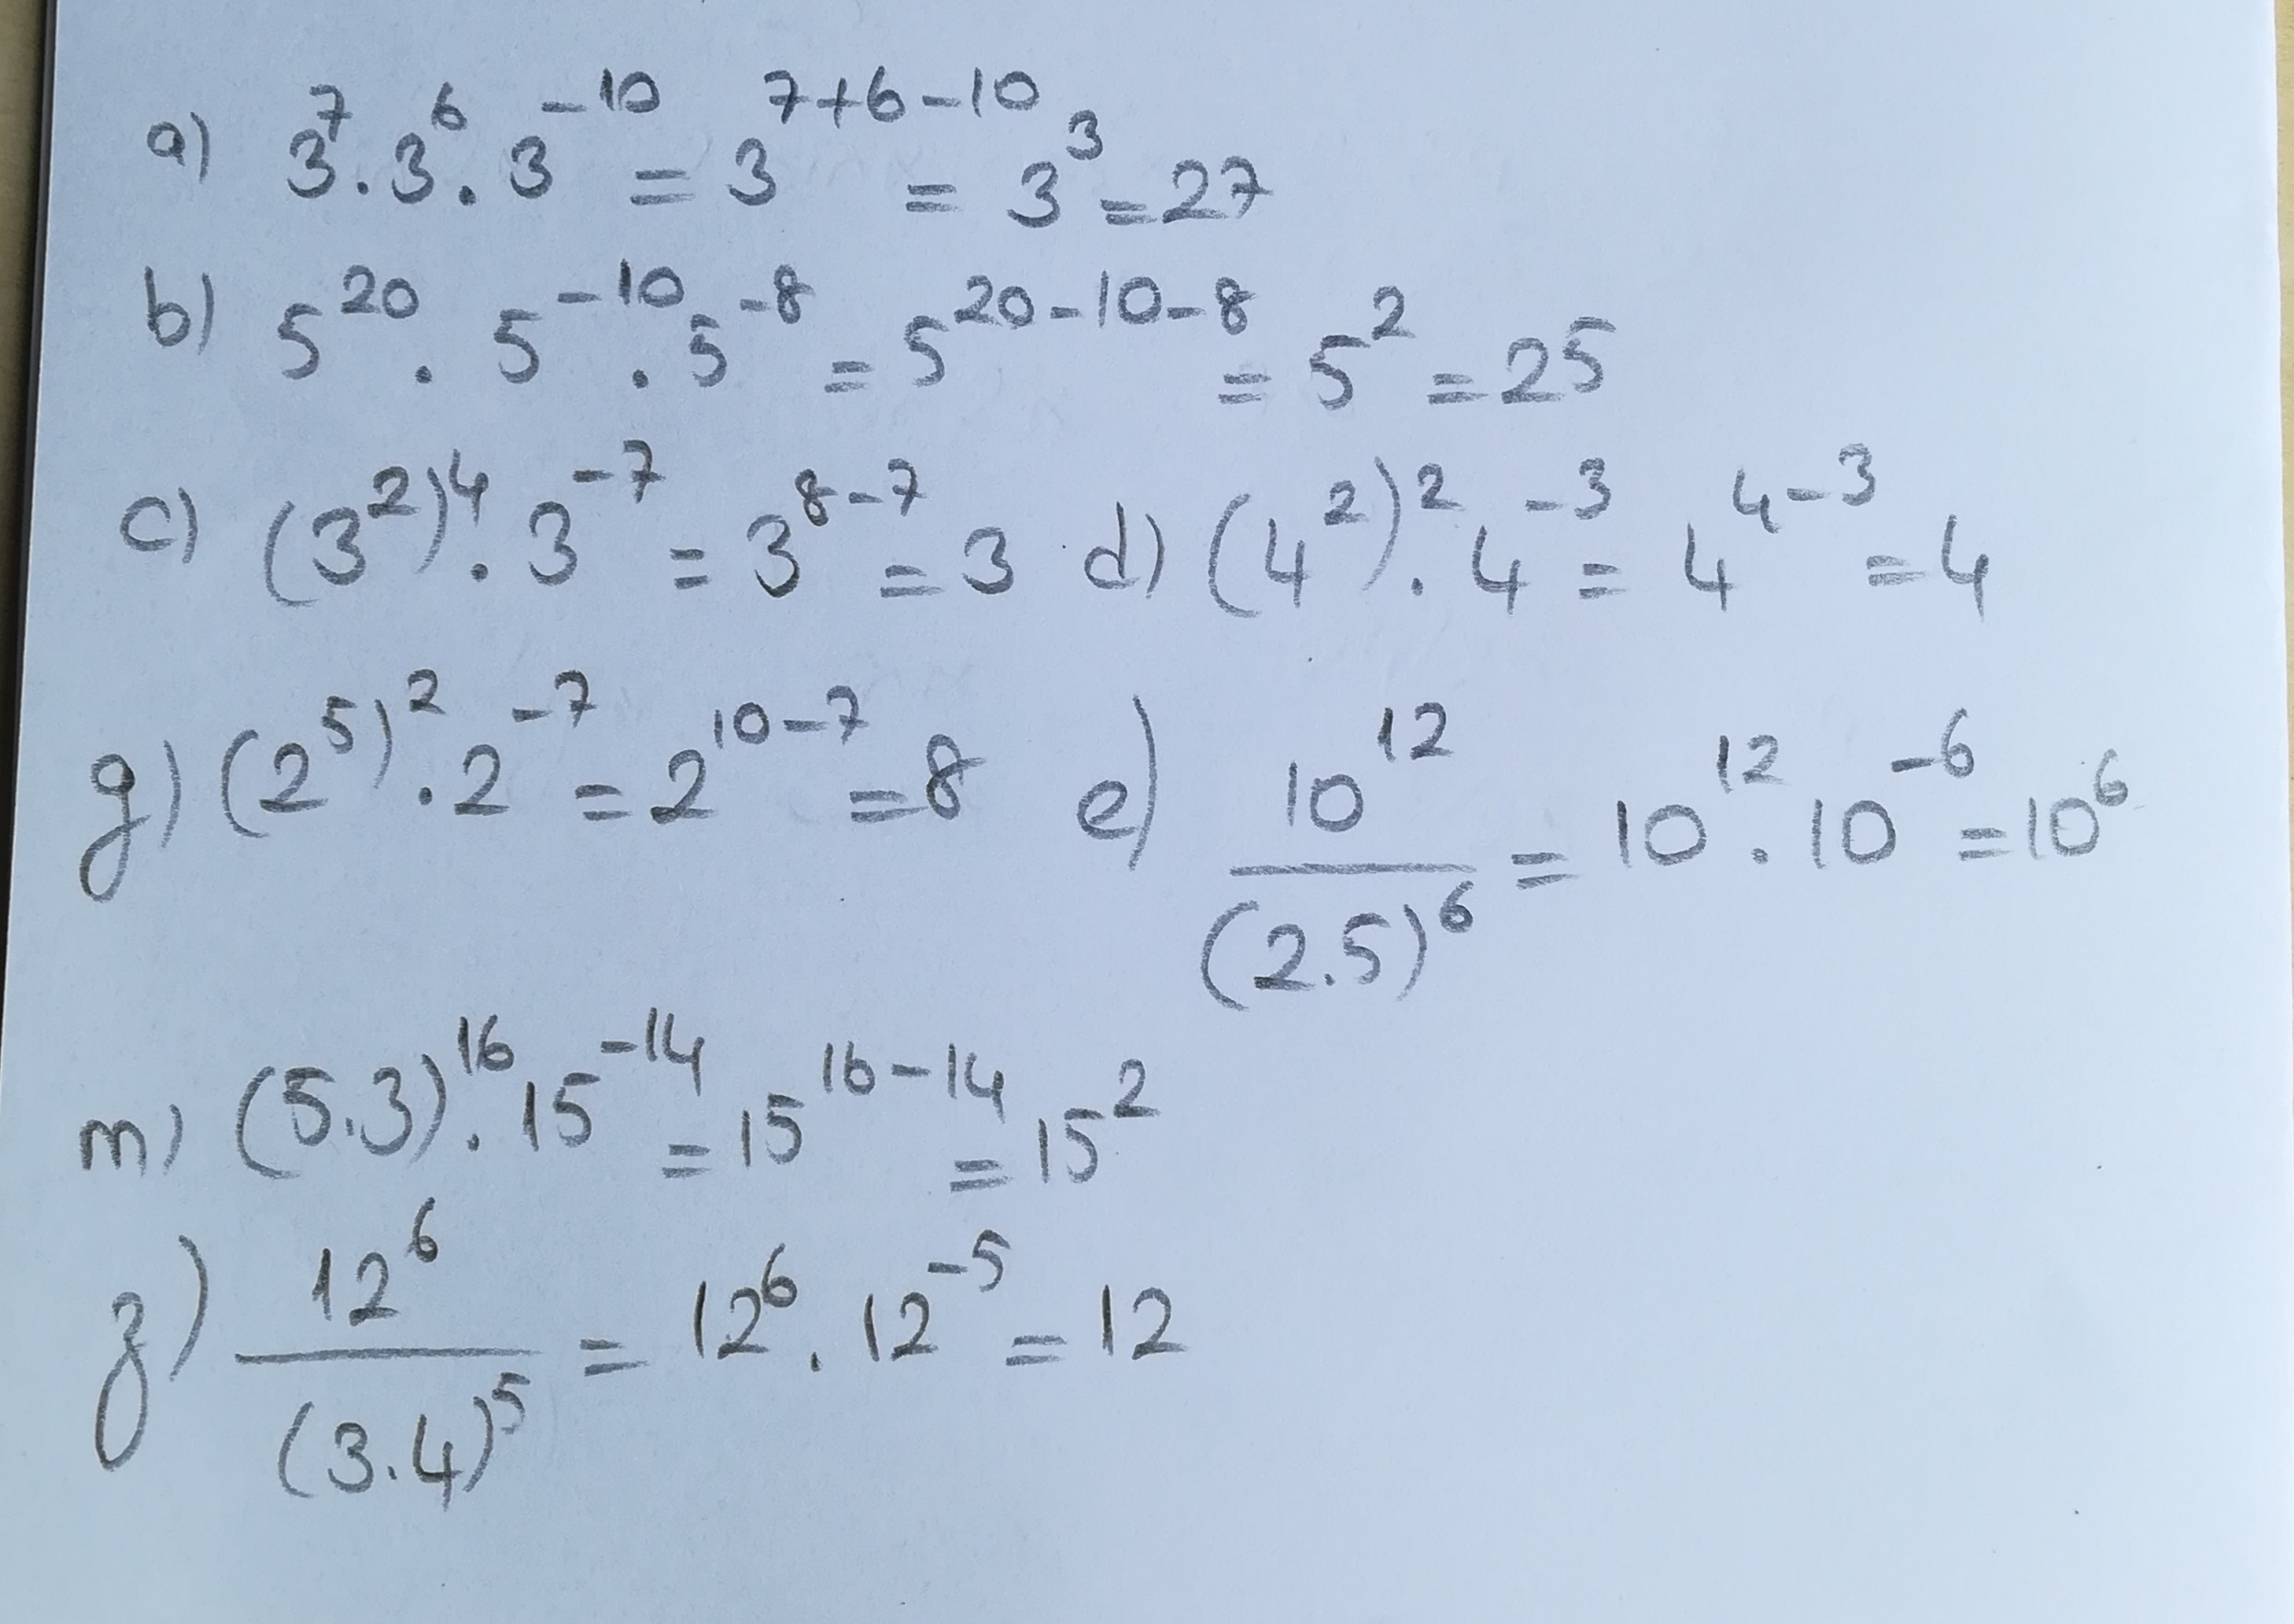 a) 3⁷ . 3⁶ . 3⁻¹⁰ = 3⁷⁺⁶⁻¹⁰ = 3³ = 27
b) 5²⁰ . 5⁻¹⁰ . 5⁻⁸ = 5²⁰⁻¹⁰⁻⁸ = 5² = 25
c) (3²)⁴ . 3⁻⁷ = 3⁸⁻⁷ = 3 d) (4²)² . 4⁻³ = 4⁴⁻³ = 4
g) (2⁵)² . 2⁻⁷ = 2¹⁰⁻⁷ = 8 e) 10¹² / (2.5)⁶ = 10¹² . 10⁻⁶ = 10⁶
m) (5.3)¹⁶ . 15⁻¹⁴ = 15¹⁶⁻¹⁴ = 15²
z) 12⁶ / (3.4)⁵ = 12⁶ . 12⁻⁵ = 12